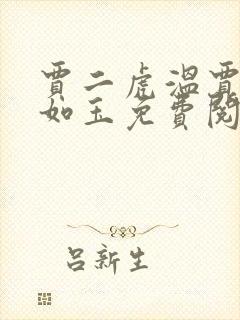 賈二虎溫賈
如玉免費閱
呂新生